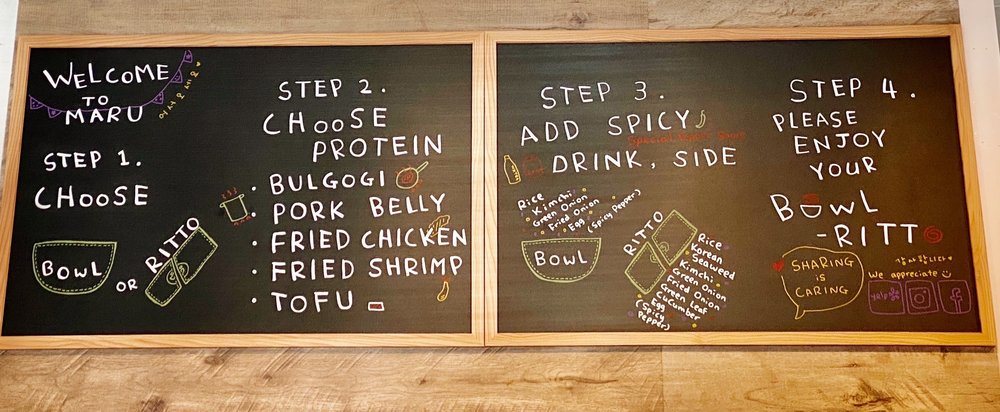 WELCOME
TO
MARU
STEP 1.
CHOOSE
BOWL
OR
RITTO
STEP 2.
CHOOSE
PROTEIN
• BULGOGI
• PORK BELLY
• FRIED CHICKEN
• FRIED SHRIMP
• TOFU
STEP 3.
ADD SPICY
DRINK, SIDE
Rice
Kimchi
Green Onion
Fried Onion
Egg (Spicy Pepper)
BOWL
RITTO
Rice
Korean
Seaweed
Kimchi
Green Onion
Fried Onion
Green Leaf
Cucumber
Egg
(Spicy
Pepper)
STEP 4.
PLEASE
ENJOY
YOUR
BOWL
-RITTO
SHARING
is
CARING
감사합니다
We appreciate
yelp
f